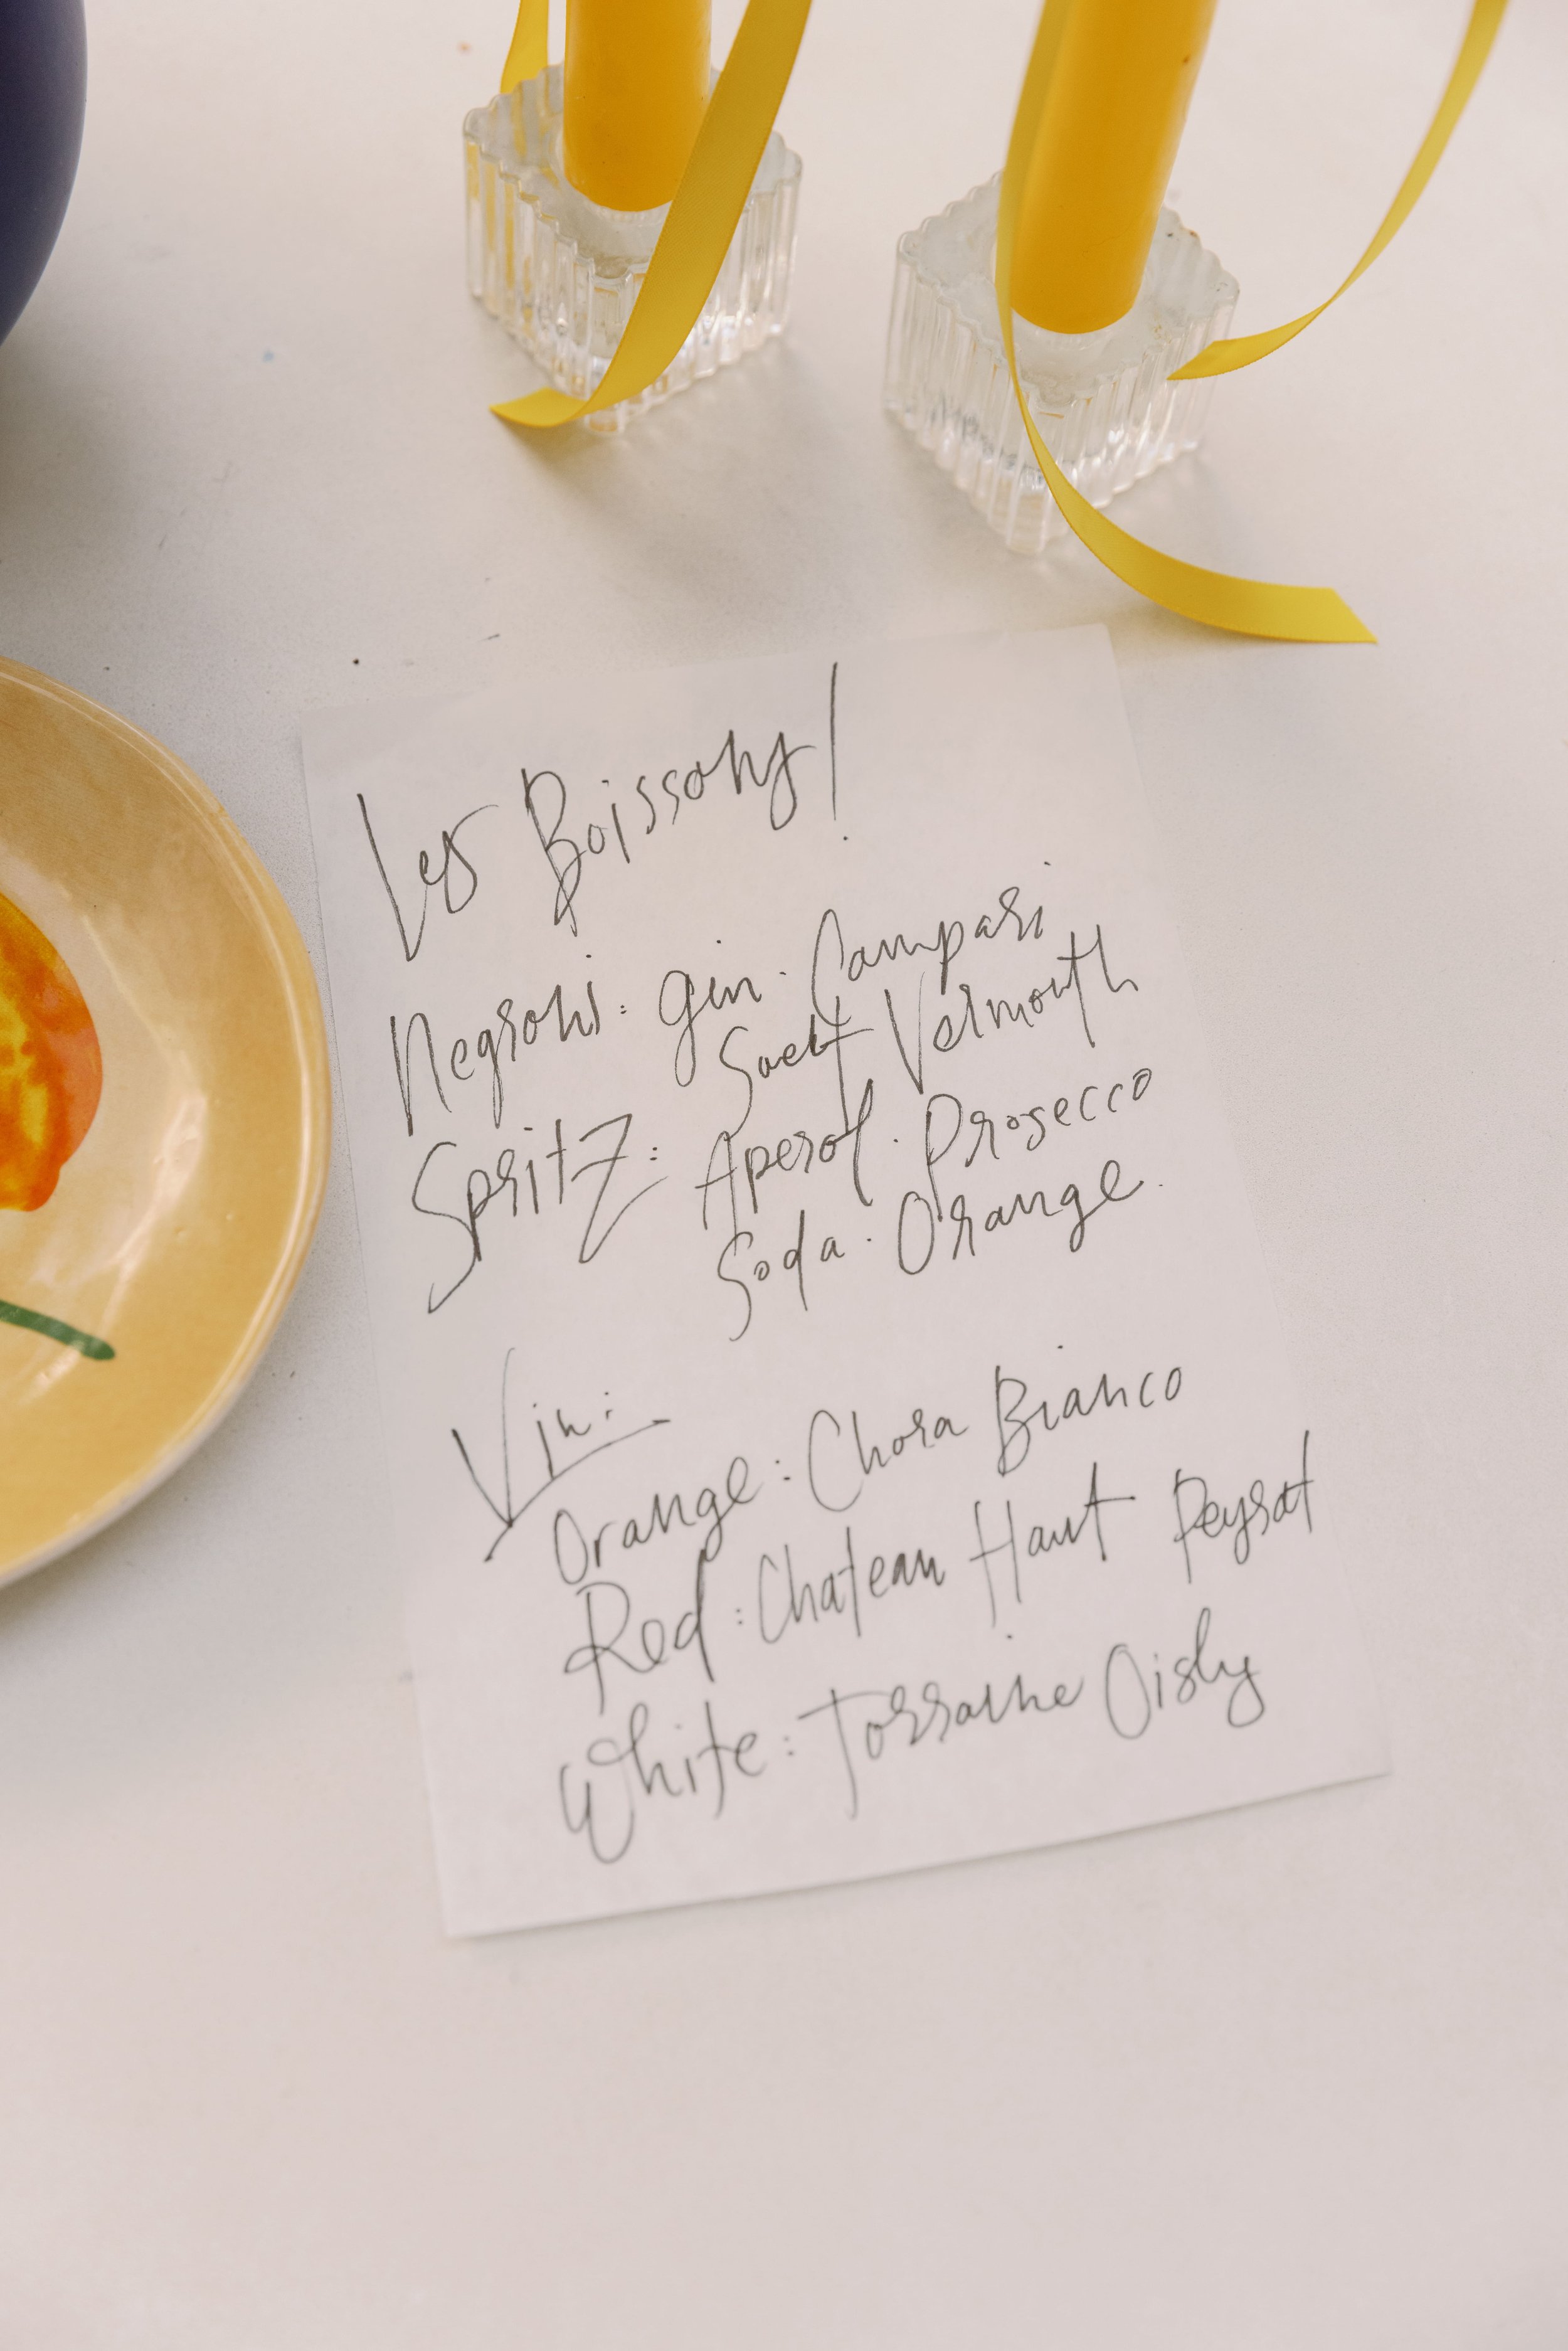 Les Boissons!
Negroni: gin. Campari
Suet Vermouth
Spritz: Aperol. Prosecco
Soda. Orange.
Vin:
Orange: Chora Bianco
Red: Chateau Haut Peyrat
White: Torraine Oisly